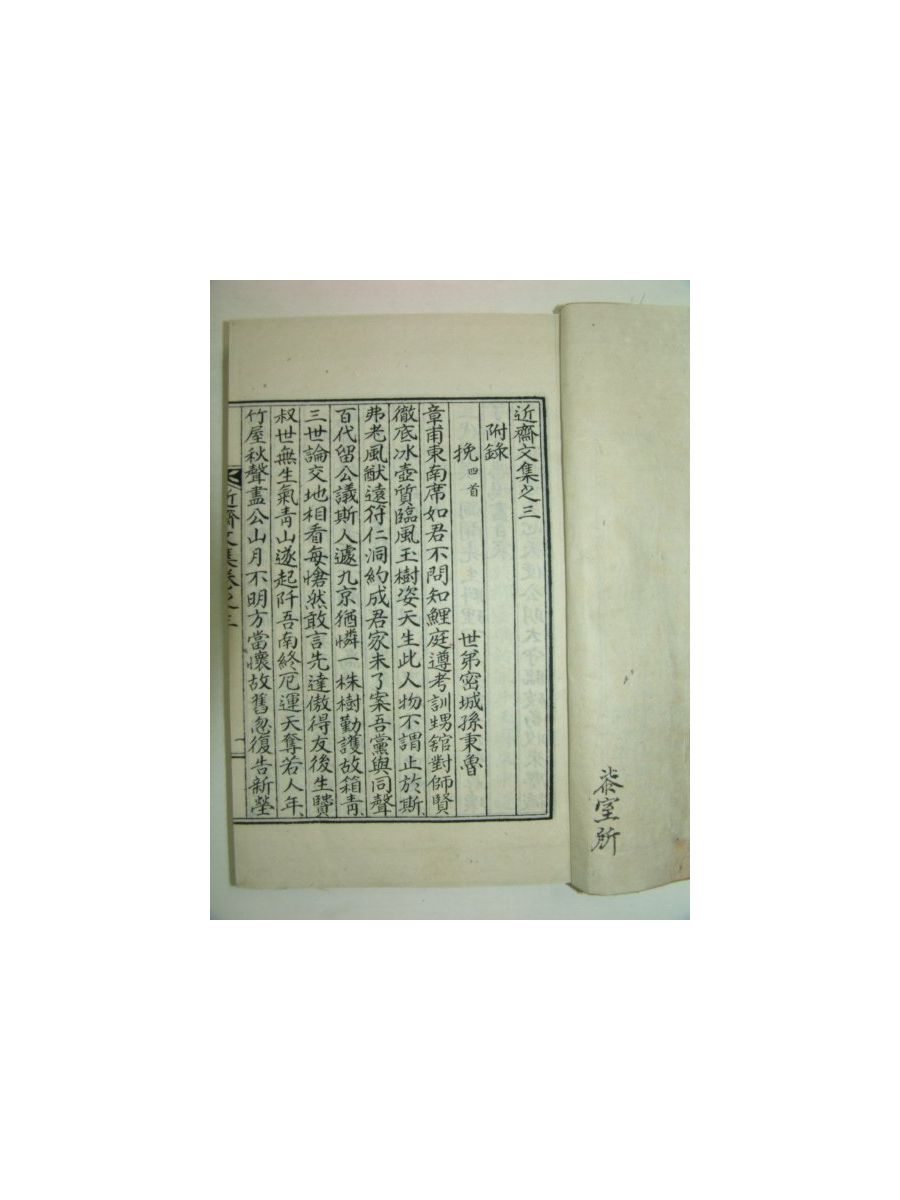 近齋文集之三
附錄
挽 四首
世弟密城孫秉魯
章甫東南席如君不問知鯉庭遵考訓甥舘對師賢
徹底冰壺質臨風玉樹姿天生此人物不謂止於斯
弗老風猷遠符仁洞約成君家未了案吾黨與同聲
百代留公議斯人遽九京猶憐一株樹勤護故箱靑
三世論交地相看每愴然敢言先達傲得友後生賢
叔世無生氣靑山遂起阡吾南終厄運天奪若人年
竹屋秋聲盡公山月不明方當懷故舊忽復告新塋
近齋文集卷之三
室所